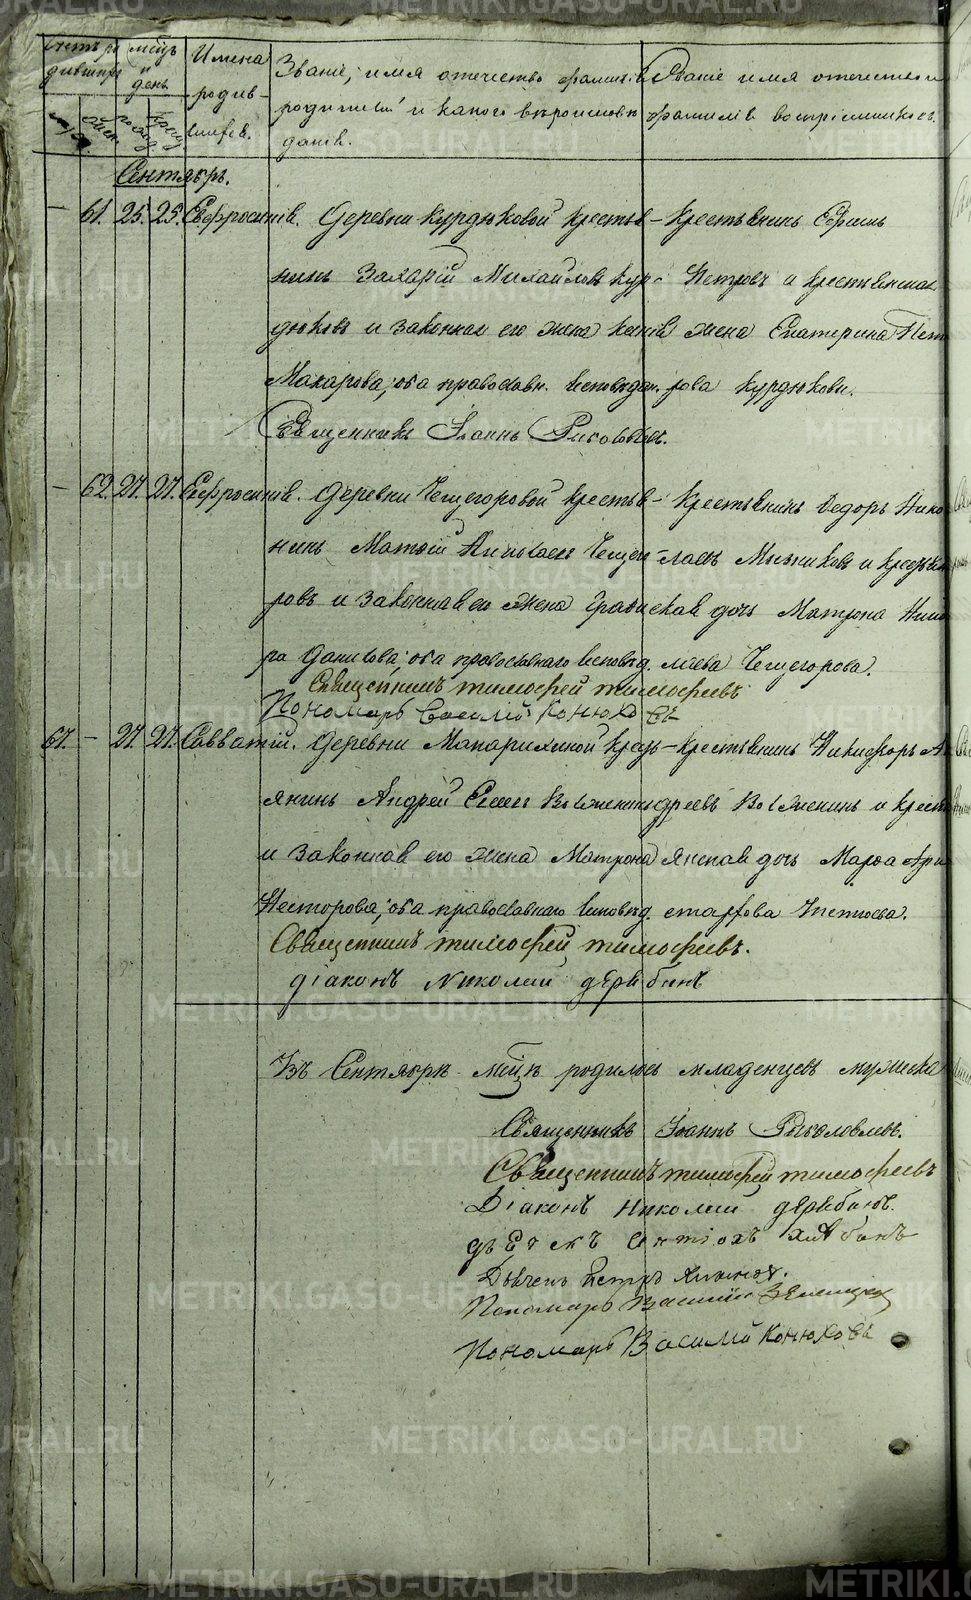 Счетъ ро
дившихся
Мѣсяцъ
и
день.
Имена
родив-
шихся.
Званіе, имя отечество фамилія
родителей и какого вѣроисповѣ
данія.
Званіе имя отечество и
фамилія воспріемниковъ.
Сентябрь.
— 61. 25. 25. Евфросинія. Деревни Курдюковой крестья-
нинъ Захарій Михайловъ Кур-
дюковъ и законная его жена Ксенія
Макарова; оба православн. исповѣдан.
крестьянинъ Ефимъ
Петровъ и крестьянская
жена Екатерина Пет
рова Курдюкови.
Священникъ Іоаннъ Рыболовлевъ.
— 62. 27. 27. Евфросинія. Деревни Чещегоровой крестья-
нинъ Матѳій Николаевъ Чещего
ровъ и законная его жена
ра Данилова; оба православнаго исповѣд.
Крестьянинъ Ѳедоръ Нико
лаевъ Мыльниковъ и крестьян
скай дочь Матрона Нико
лаева Чещегорова.
Священникъ Тимофей Тимофеевъ
Пономарь Василій Конюховъ
67. — 27. 27. Савватій. Деревни Макарихиной кресть-
янинъ Андрей Вовженинъ
и законная его жена Матрона
Несторова; оба православнаго исповѣд.
крестьянинъ Никифоръ Ан
дреевъ Вовженинъ и крестья
янская дочь Марѳа Ари
стархова
Священникъ Тимофей Тимофеевъ.
Діаконъ Николай Дерябинъ
Въ Сентябрѣ мѣсяцѣ родилось младенцевъ мужеска
Священникъ Іоаннъ Рыболовлевъ.
Священникъ Тимофей Тимофеевъ
Діаконъ Николай Дерябинъ.
Дьячекъ Антіохъ
Дьячекъ Петръ
Пономарь Василій
Пономарь Василій Конюховъ
METRIKI.GASO-URAL.RU